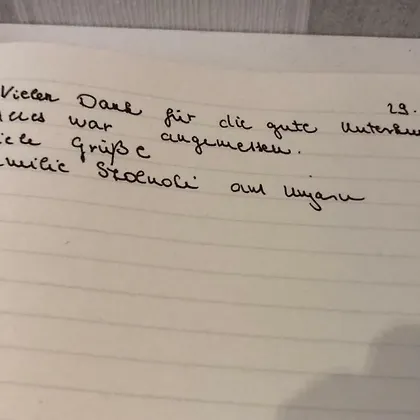 29.
Vielen Dank für die gute Unterku
lles war angemessen.
iele Grüße
amilie Szolnoki aus Ungarn